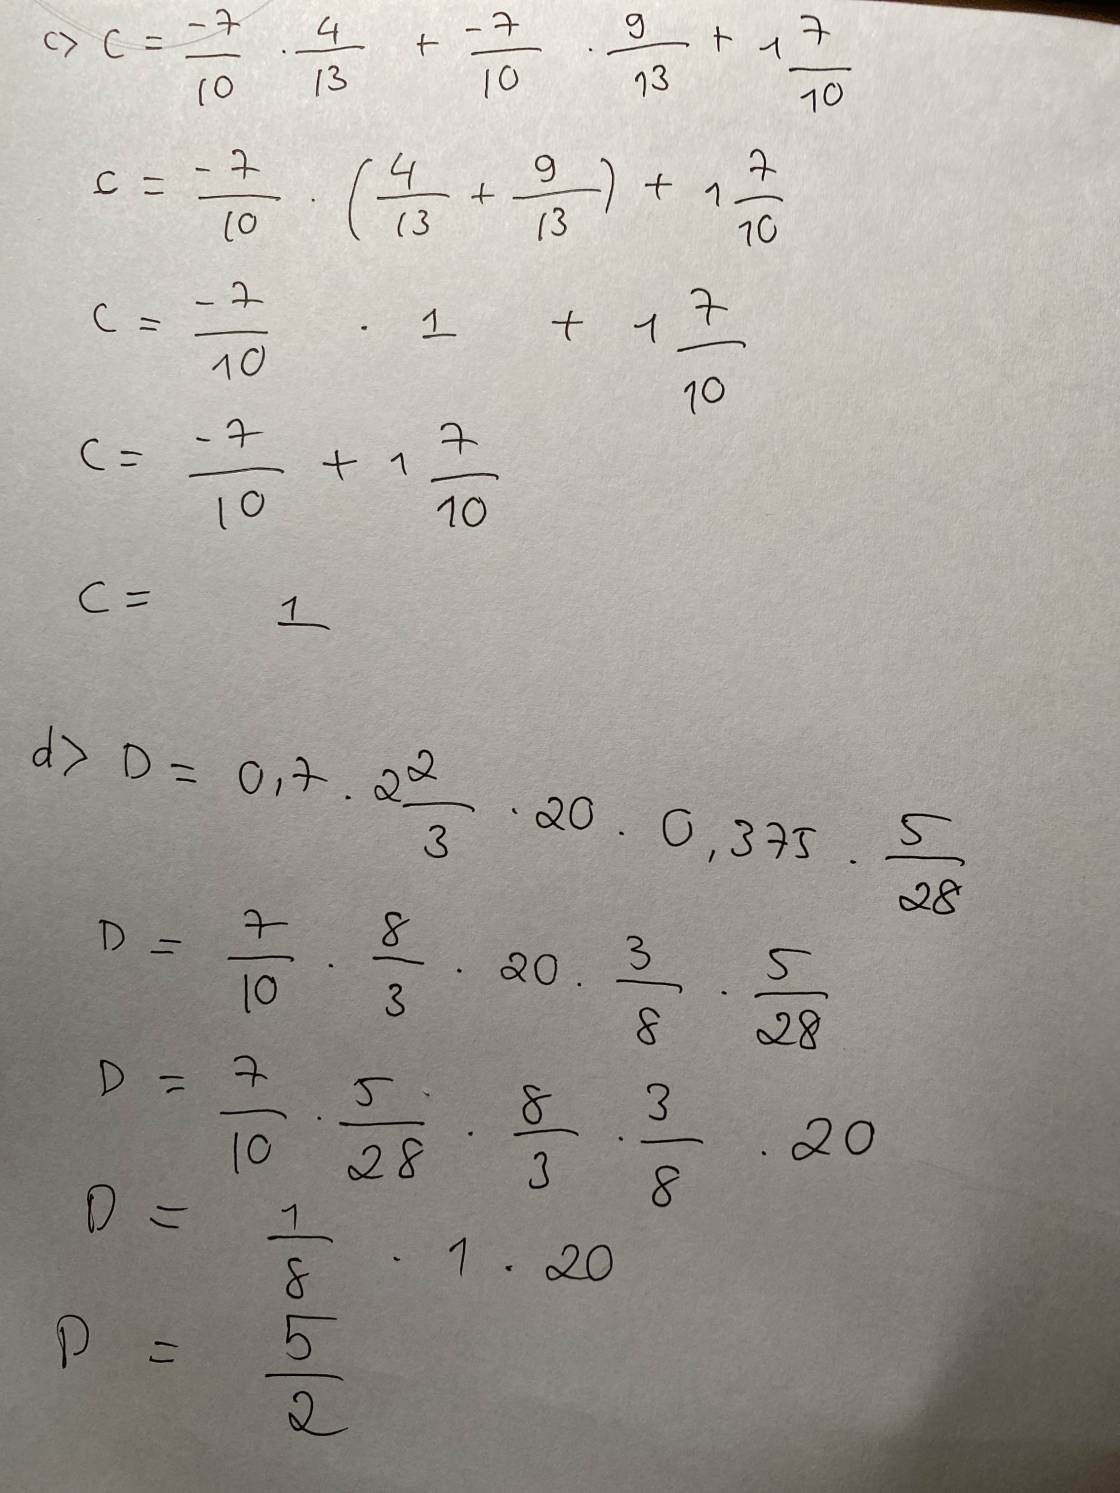 c> C = -7/10 · 4/13 + -7/10 · 9/13 + 1 7/10
C = -7/10 · (4/13 + 9/13) + 1 7/10
C = -7/10 · 1 + 1 7/10
C = -7/10 + 1 7/10
C = 1
d> D = 0,7 · 2 2/3 · 20 · 0,375 · 5/28
D = 7/10 · 8/3 · 20 · 3/8 · 5/28
D = 7/10 · 5/28 · 8/3 · 3/8 · 20
D = 1/8 · 1 · 20
D = 5/2